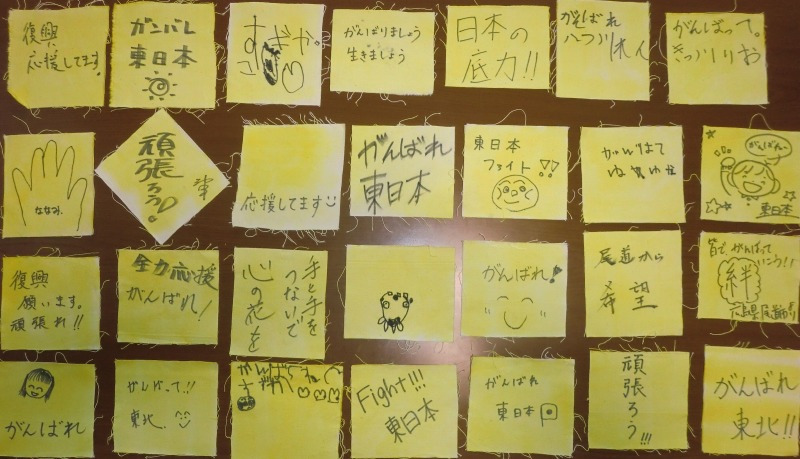 復興
応援してます。
ガンバレ
東日本
がんばりましょう
生きましょう
日本の
底力!!
がんばれ
がんばって。
ななみ
頑張ろう!
応援してます
がんばれ
東日本
東日本
ファイト!!
がんばれ
東日本
復興
願います。
頑張れ!!
全力応援
がんばれ!
手と手を
つないで
心の花を
がんばれ!
尾道から
希望
皆で、がんばって
いこう!!
絆
広島県尾道市
がんばれ
がんばって!!
東北
Fight!!!
東日本
がんばれ
東日本
頑張ろう!!!
がんばれ
東北!!